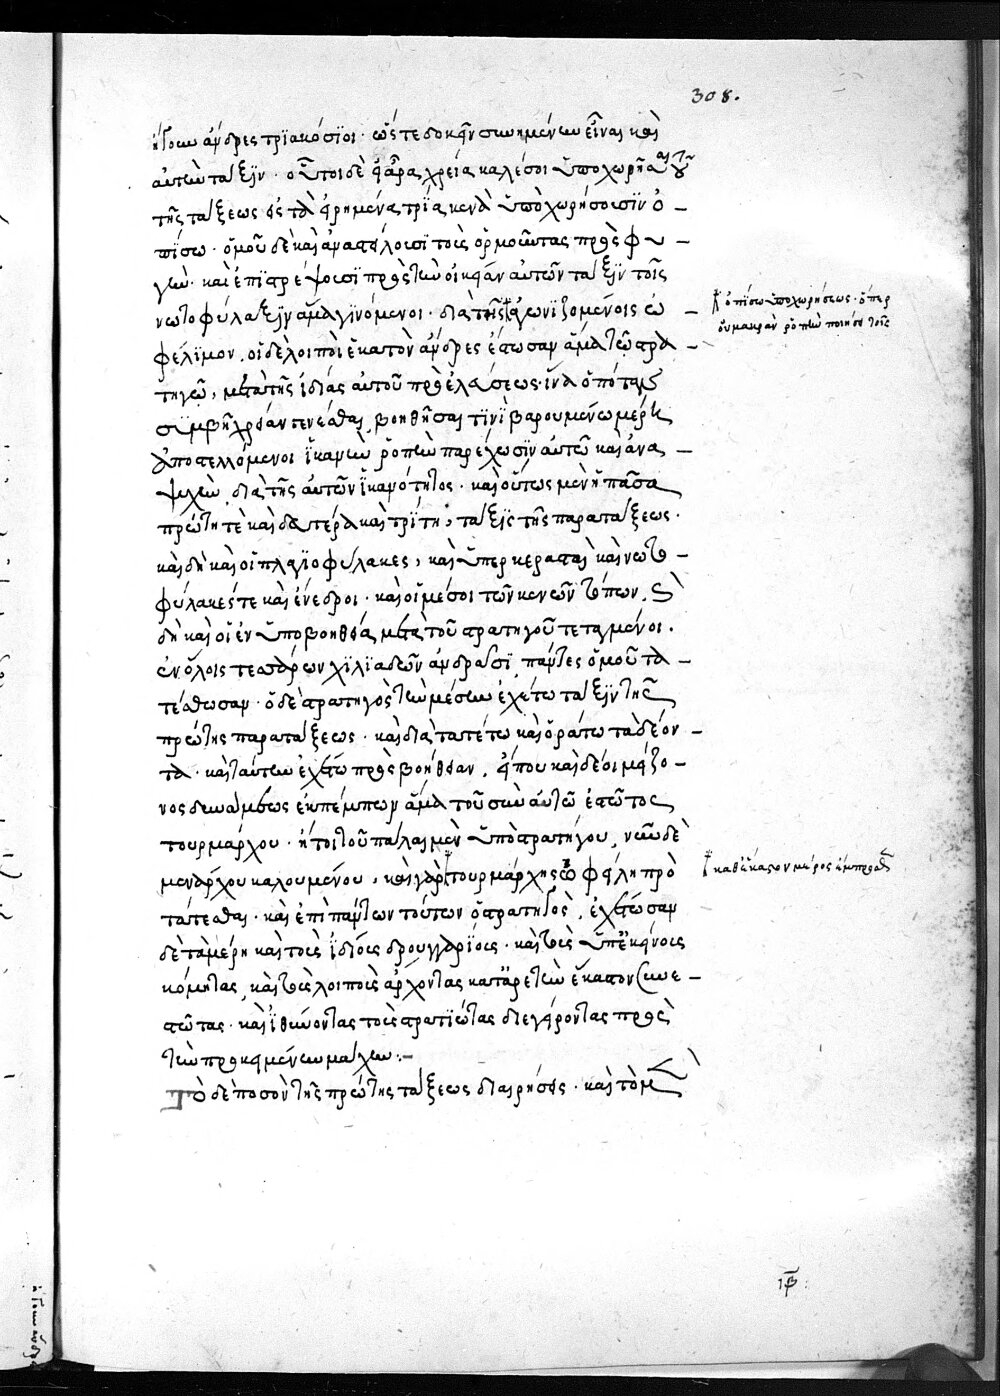 308.
ἤγουν ἄνδρες τριακόσιοι · ὥστε δοκεῖν συνημμένην εἶναι καὶ
αὐτὴν τάξιν · οὗτοι δὲ εἰ ἄρα χρεία καλέσοι ὑποχωρῆσαι
τῆς τάξεως εἰς τὰ εἰρημένα τρία κενὰ ὑποχωρήσουσιν ὀ –
πίσω · ὁμοῦ δὲ καὶ ἀναστέλουσι τοὺς ὁρμοῦντας πρὸς φυ –
γὴν · καὶ ἐπιστρέψουσι πρὸς τὴν οἰκείαν αὐτῶν τάξιν τοῖς
νωτοφύλαξιν ἅμα γινόμενοι · διὰ τοῖς ἀγωνιζομένοις ὠ –
φέλιμον . οἱ δὲ λοιποὶ ἑκατὸν ἄνδρες ἔστωσαν ἅμα τῷ στρα –
τηγῷ, μετὰ τῆς ἰδίας αὐτοῦ προελεύσεως · ἵνα ὁπόταν
συμβῇ χρείαν γενέσθαι βοηθῆσαι τινὶ βαρουμένῳ μέρει
ἀποστελλόμενοι ἱκανὴν ῥοπὴν παρέχωσιν αὐτῷ καὶ ἀνα –
ψυχὴν διὰ τῆς αὐτῶν ἱκανότητος · καὶ οὕτως μὲν ἡ πᾶσα
πρώτη τὲ καὶ δευτέρα καὶ τρίτη, τάξις τῆς παρατάξεως ·
καὶ δὴ καὶ οἱ πλαγιοφύλακες, καὶ ὑπερκερασταὶ καὶ νωτο –
φύλακές τε καὶ ἔνεδροι · καὶ οἱ μέσοι τῶν κενῶν τόπων . καὶ
δὴ καὶ οἱ ἐν ὑποβοηθείᾳ μετὰ τοῦ στρατηγοῦ τεταγμένοι .
ἐν ὅλοις τεσσάρων χιλιάδων ἀνδράσι πάντες ὁμοῦ τα –
τέσθωσαν · ὁ δὲ στρατηγὸς τὴν μέσην ἐχέτω τάξιν τῆς
πρώτης παρατάξεως · καὶ διατατέτω καὶ ὁράτω τὰ δέον –
τα · καὶ ταύτην ἐχέτω πρὸς βοήθειαν, εἴ που καὶ δέοι μείζο –
νος δυνάμεως ἐκπέμπειν ἅμα τοῦ σὺν αὐτῷ ἑστῶτος
τουρμάρχου · ἤτοι τοῦ πάλαι μὲν ὑποστρατήγου, νῦν δὲ
μεράρχου καλουμένου, καὶ γὰρ τουρμάρχης ὀφείλει προ
τάτεσθαι · καὶ ἐπὶ πάντων τούτων ὁ στρατηγὸς, ἐχέτωσαν
δὲ τὰ μέρη καὶ τοὺς ἰδίους δρουγγαρίους · καὶ τοὺς ὑπ' ἐκείνοις
κόμητας, καὶ τοὺς λοιποὺς ἄρχοντας κατ' ἀρετὴν ἕκαστον συνε –
στῶτας · καὶ ἰθύνοντας τοὺς στρατιώτας διεγείροντας πρὸς
τὴν προκειμένην μάχην : –
Τὸ δὲ ποσὸν τῆς πρώτης τάξεως διαιρήσεις · καὶ τὸ μὲν
ὀπίσω ὑποχωρήσεως · ὅπερ
οὐ μικρὰν ῥοπὴν ποιήσει τοῖς
καθ' ἕκαστον μέρος ἔμπροσθεν
ιβ